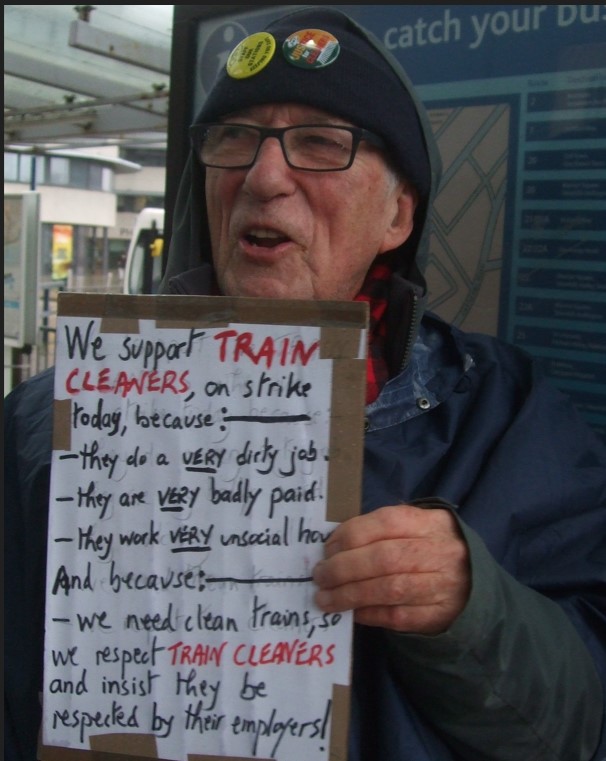 catch your bus
We support TRAIN
CLEANERS, on strike
today, because:—
- they do a VERY dirty job.
- they are VERY badly paid.
- they work VERY unsocial hou
And because:—
- we need clean trains, so
we respect TRAIN CLEANERS
and insist they be
respected by their employers!